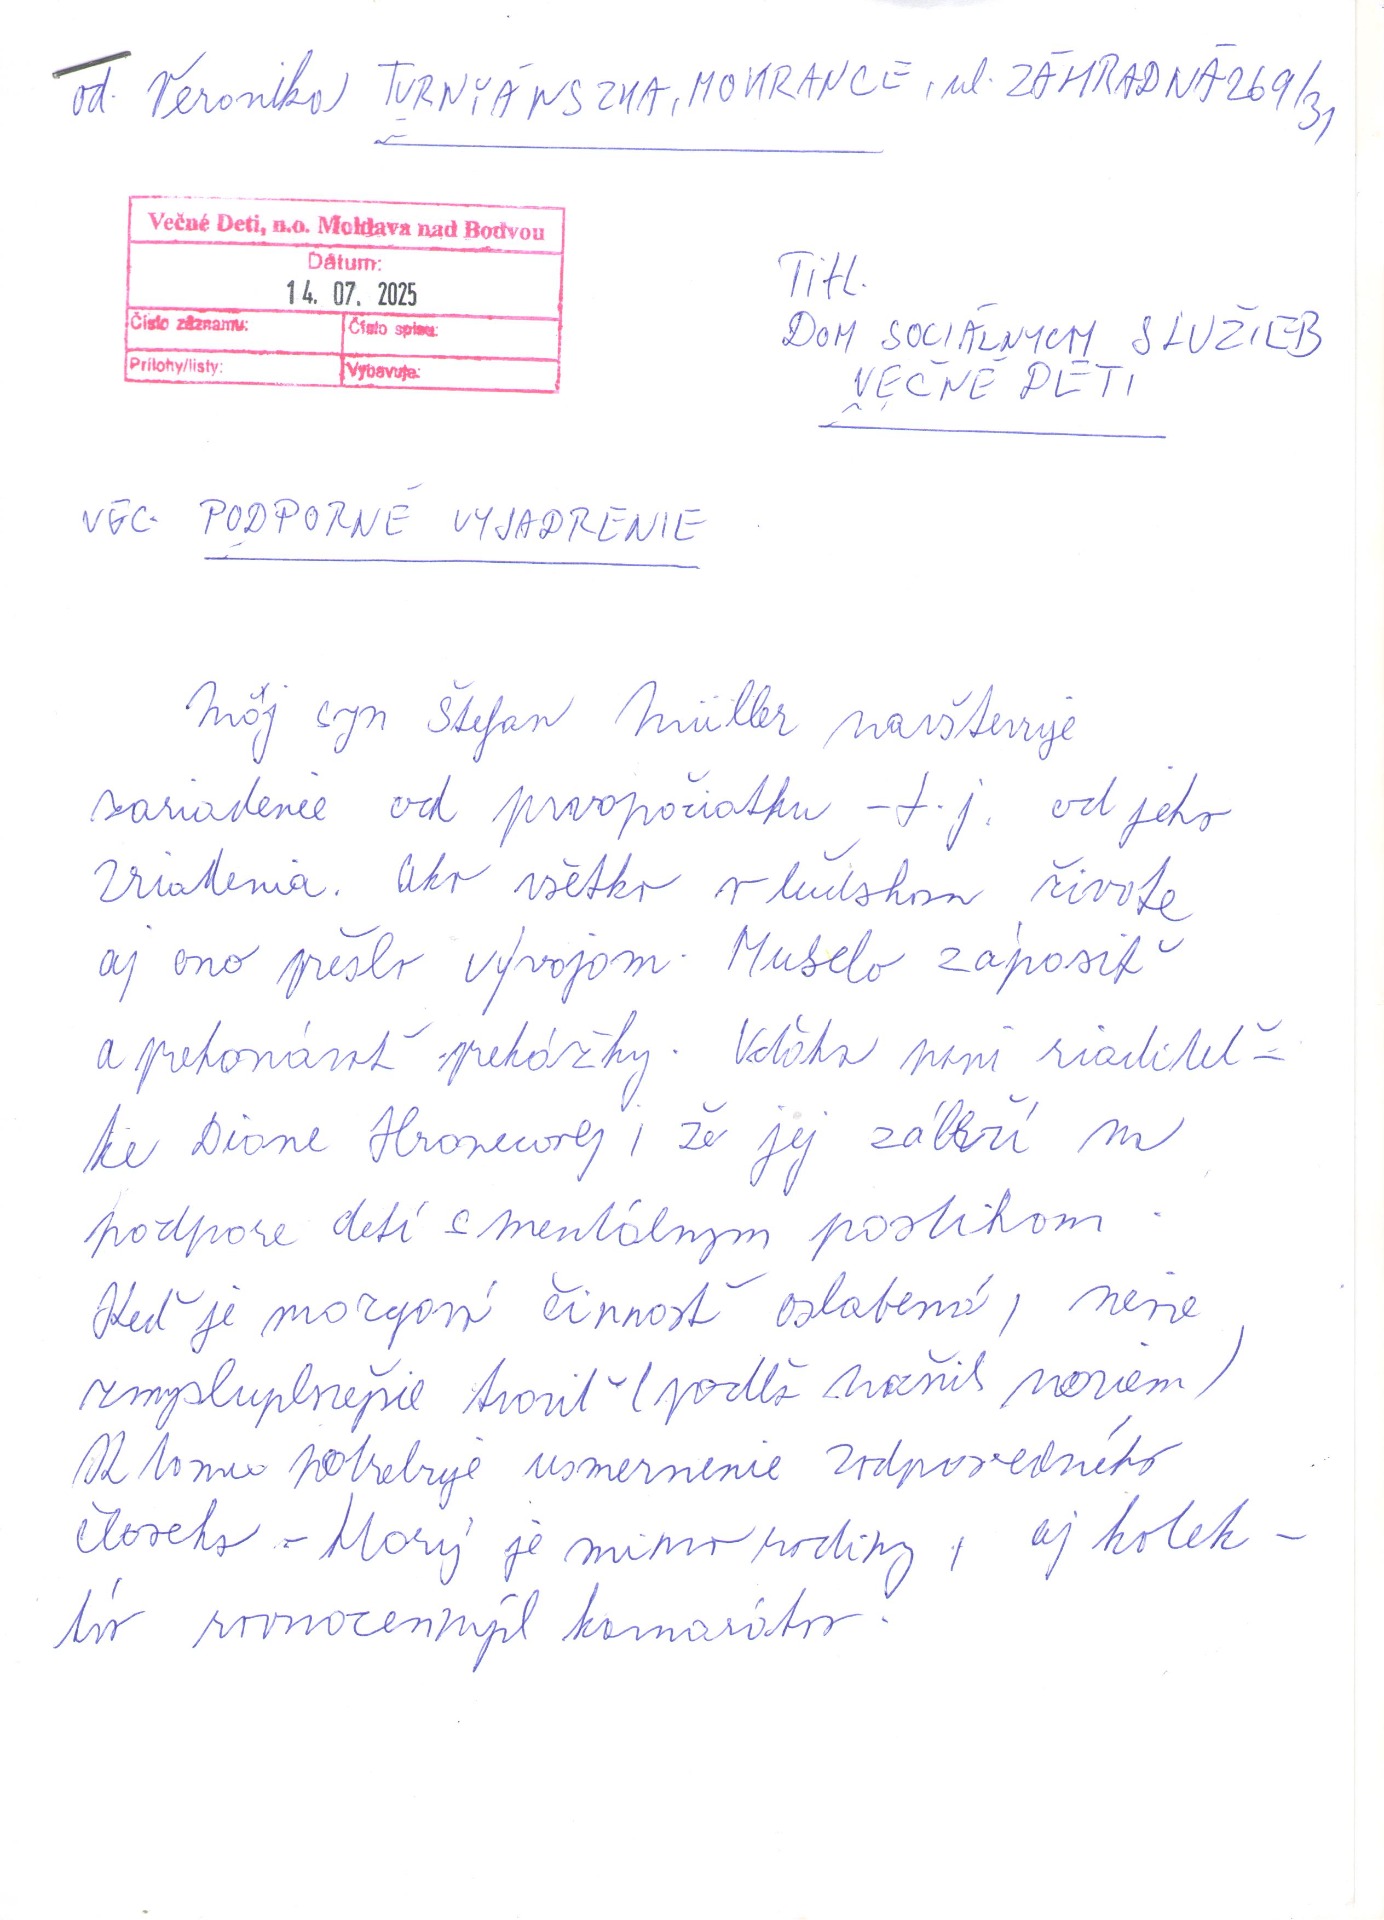 od. Veronika TURNYÁNSZKA, MOKRANCE, ul. ZÁHRADNÁ 269/31
Večné Deti, n.o. Moldava nad Bodvou
Dátum:
14. 07. 2025
Číslo záznamu:
Číslo spisu:
Prílohy/listy:
Vybavuje:
Titl.
DOM SOCIÁLNYCH SLUŽIEB
VEČNÉ DETI
VEC. PODPORNÉ VYJADRENIE
Môj syn Štefan Müller navštevuje
zariadenie od prvopočiatku - t. j. od jeho
zriadenia. Ako všetko v ľudskom živote
aj ono prešlo vývojom. Muselo zápasiť
a prekonávať prekážky. Vďaka pani riaditeľ-
ke Diane Hronecovej, že jej záleží na
podpore detí s mentálnym postihom.
Keď je mozgová činnosť oslabená, nevie
zmysluplnejšie tvoriť (podľa našich noriem)
K tomu potrebuje usmernenie zodpovedného
človeka - ktorý je mimo rodiny, aj kolek-
tív rovnocenných kamarátov.